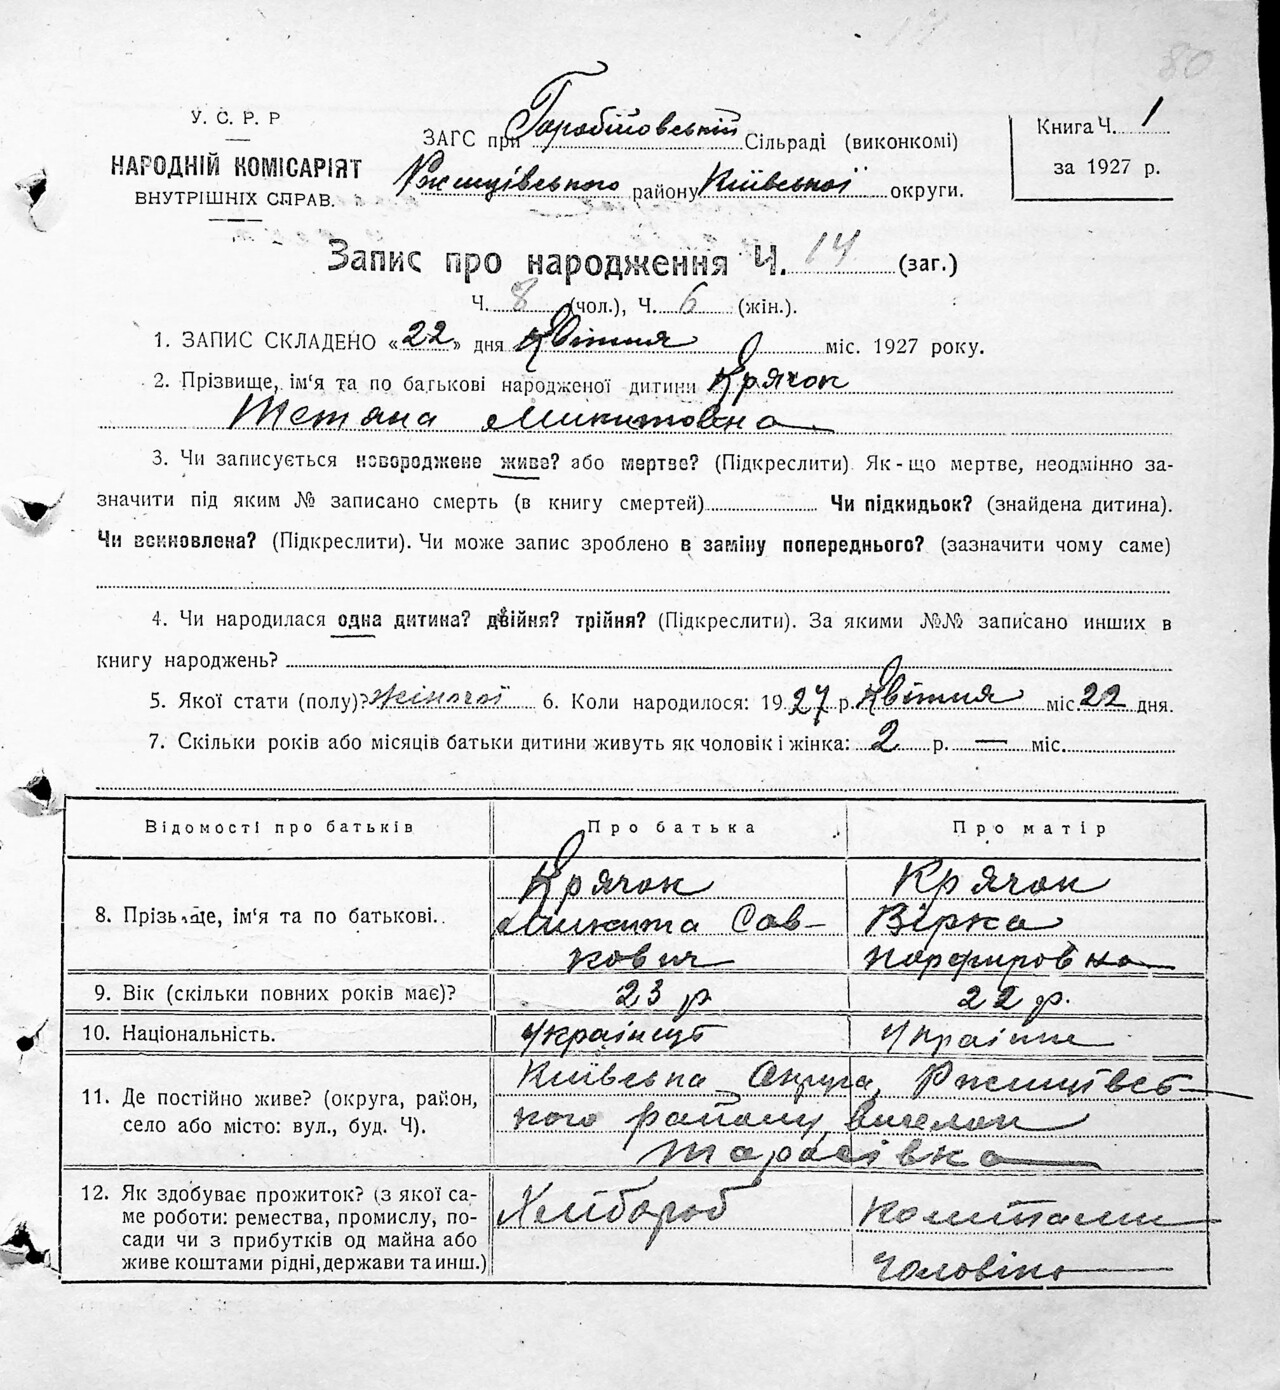 80
У. С. Р. Р
НАРОДНІЙ КОМІСАРІЯТ
ВНУТРІШНІХ СПРАВ.
ЗАГС при Горобіївській Сільраді (виконкомі)
Ржищівського району Київської округи.
Книга Ч. 1
за 1927 р.
Запис про народження Ч. 14 (заг.)
Ч. 8 (чол.), Ч. 6 (жін.).
1. ЗАПИС СКЛАДЕНО «22» дня Квітня міс. 1927 року.
2. Прізвище, ім'я та по батькові народженої дитини Крячок
Тетяна Микитовна
3. Чи записується новороджене живе? або мертве? (Підкреслити). Як-що мертве, неодмінно за-
значити під яким № записано смерть (в книгу смертей) Чи підкидьок? (знайдена дитина).
Чи вєкновлена? (Підкреслити). Чи може запис зроблено в заміну попереднього? (зазначити чому саме)
4. Чи народилася одна дитина? двійня? трійня? (Підкреслити). За якими №№ записано инших в
книгу народжень?
5. Якої стати (полу)? жіночої 6. Коли народилося: 1927 р. Квітня міс. 22 дня.
7. Скільки років або місяців батьки дитини живуть як чоловік і жінка: 2 р. — міс.
Відомості про батьків Про батька Про матір
8. Прізьище, ім'я та по батькові..
Крячок
Микита Сав-
кович
Крячок
Вірка
Порфировна
9. Вік (скільки повних років має)? 23 р 22 р.
10. Національність. Українець Українка
11. Де постійно живе? (округа, район,
село або місто: вул., буд. Ч).
Київська Округа, Ржищівсь-
кого району, виселок
Тарасівка
12. Як здобуває прожиток? (з якої са-
ме роботи: ремества, промислу, по-
сади чи з прибутків од майна або
живе коштами рідні, держави та инш.)
Хлібороб
Коштами
Чоловіка